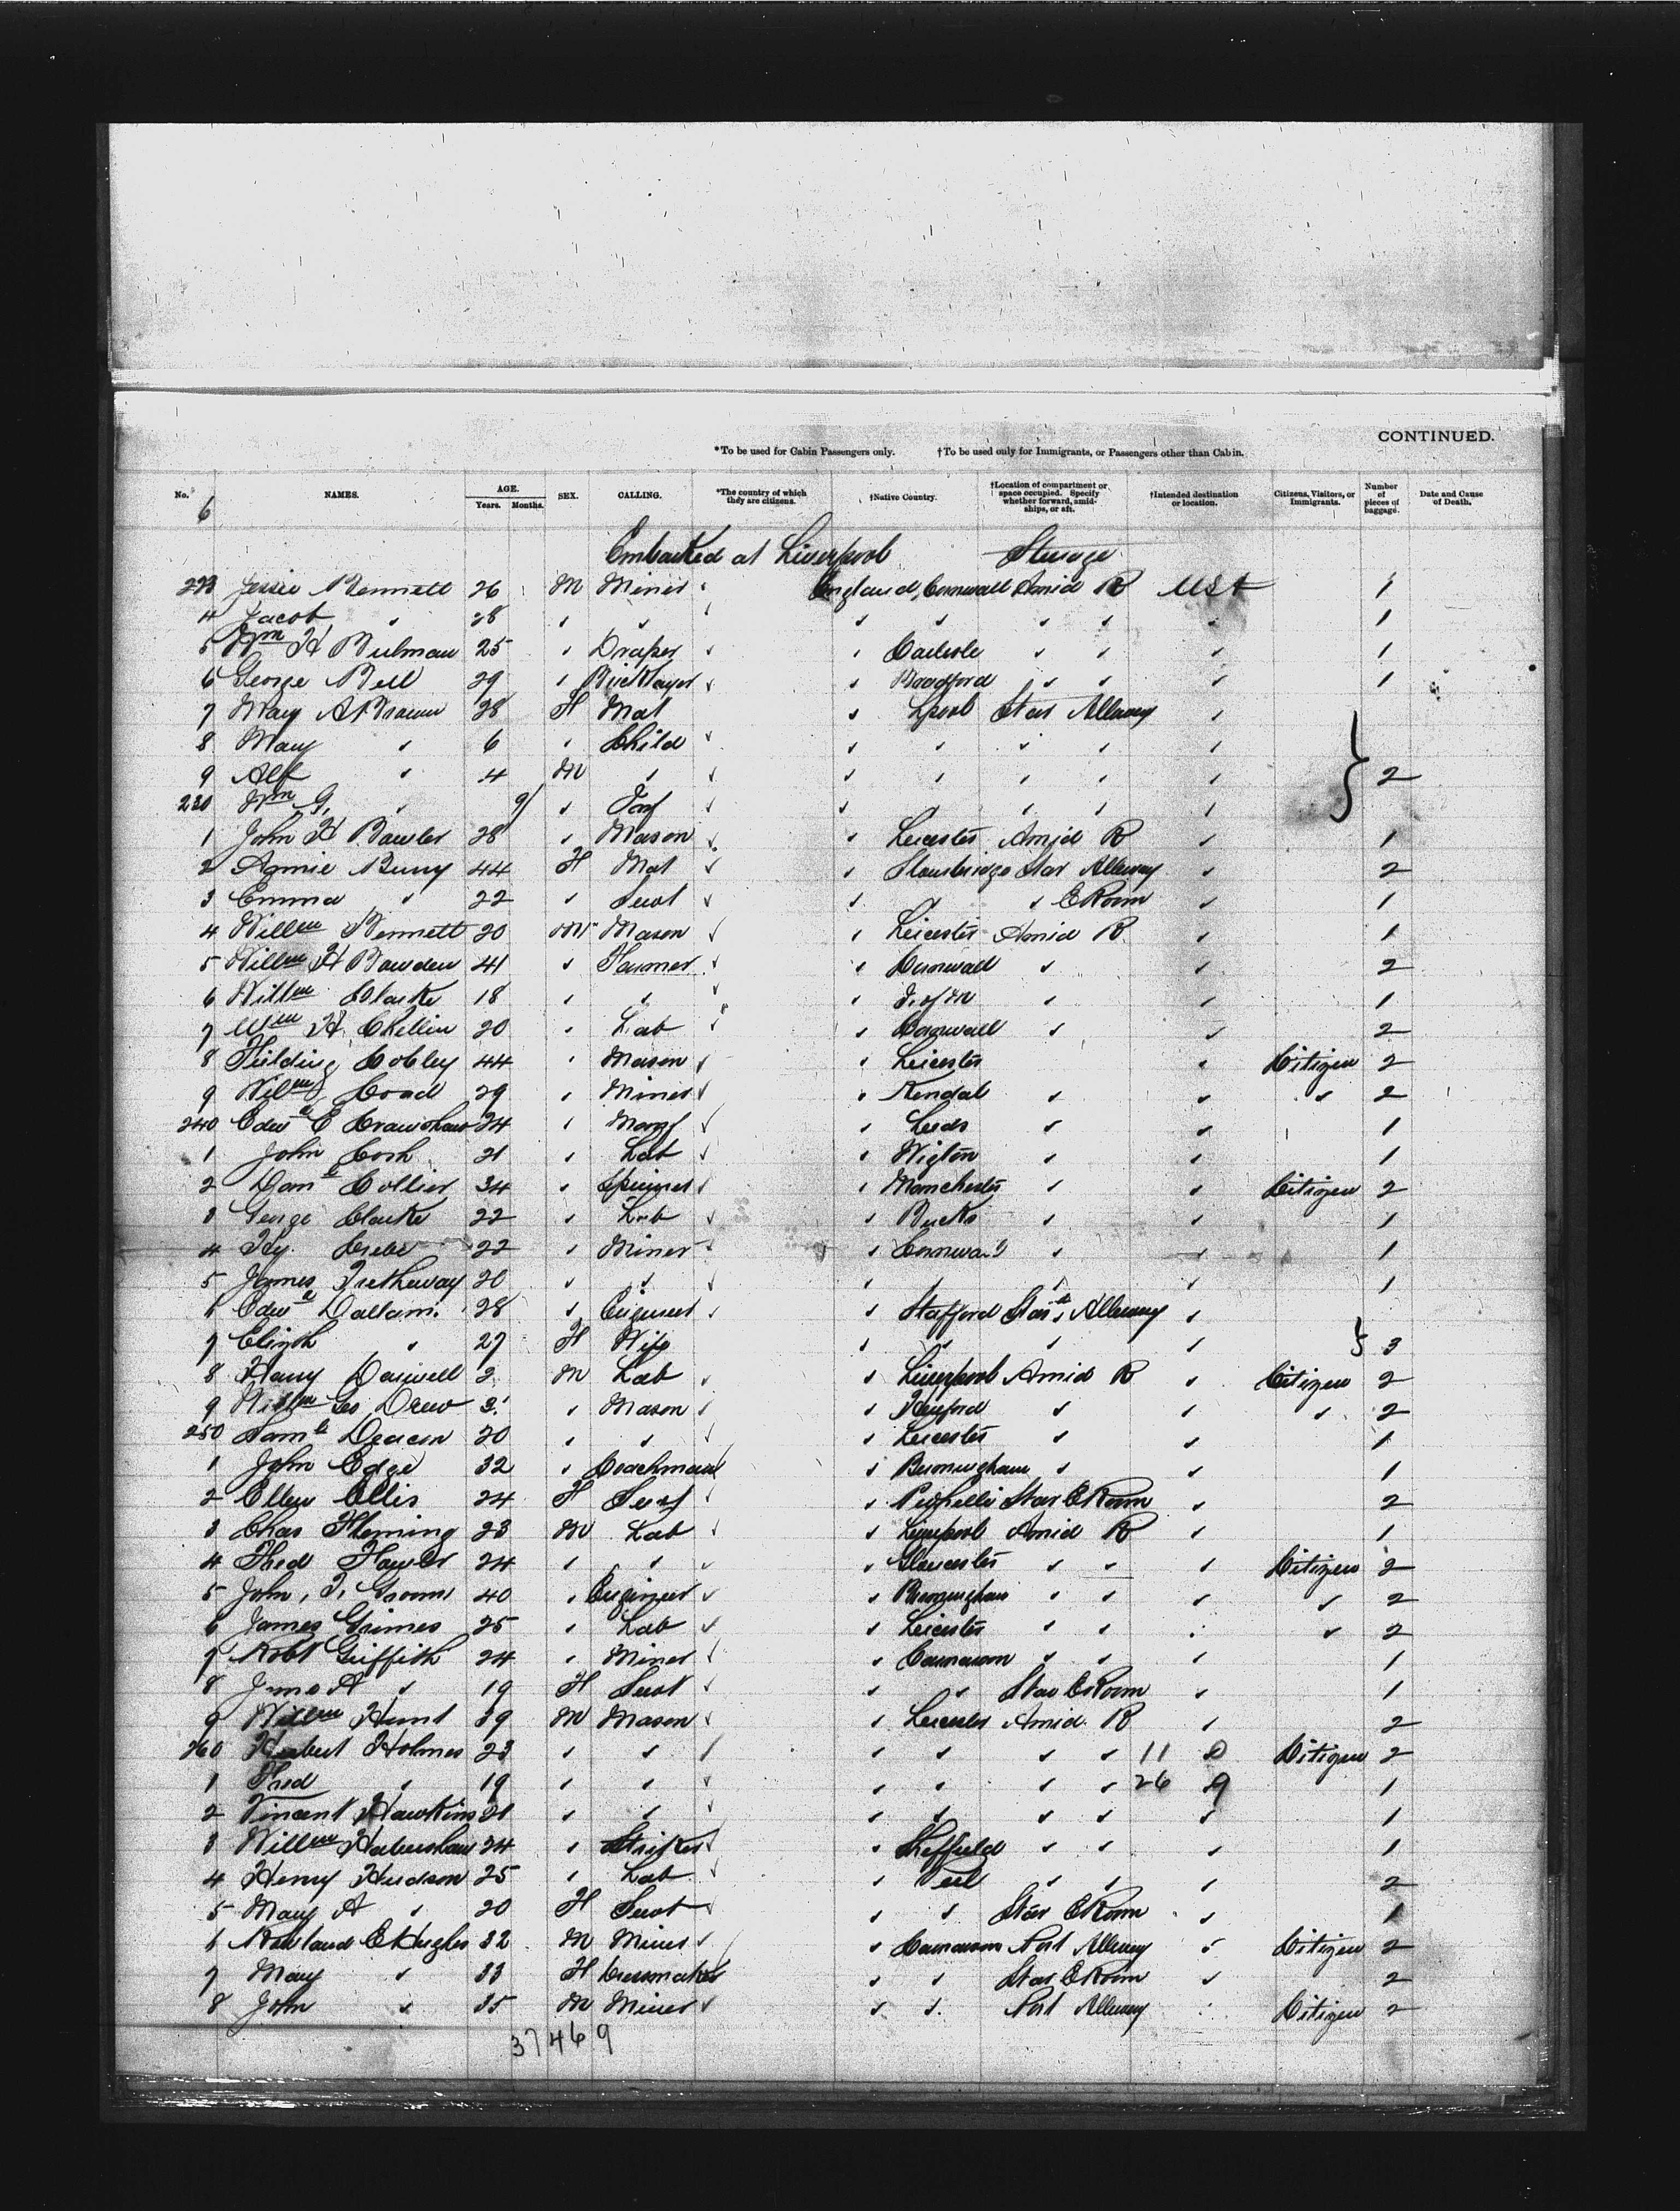 CONTINUED.
*To be used for Cabin Passengers only. †To be used only for Immigrants, or Passengers other than Cabin.
No. NAMES. AGE. Years. Months. SEX. CALLING. *The country of which they are citizens. †Native Country. †Location of compartment or space occupied. Specify whether forward, amidships, or aft. †Intended destination or location. Citizens, Visitors, or Immigrants. Number of pieces of baggage. Date and Cause of Death.
6
Embarked at Liverpool Steerage
223 Jessie Bennett 26 M Miner England, Cornwall Amid R USA 1
4 Jacob " 28 " " " " " " " 1
5 Wm H Bulman 25 " Draper " Carlisle " " " 1
6 George Bell 29 " Bricklayer " Bradford " " " 1
7 Mary A Brown 28 F Mat " Lpool Star Alleway "
8 Mary " 6 " Child " " " " "
9 Alf " 4 M " " " " " " 2
230 Wm G. " 9/ " Inf " " " "
1 John H 28 " Mason " Leicester Amid R " 1
2 Annie Berry 44 F Mat " Stourbridge Star Alleway " 2
3 Emma " 22 " Servt " " " E Room " 1
4 Willm Bennett 20 M Mason " Leicester Amid R " 1
5 Willm H Bawden 41 " Farmer " Cornwall " " 2
6 Willm Clarke 18 " " " I. of M " " 1
7 Wm H. 20 " Lab " Cornwall " " 2
8 Fielding Cobley 44 " Mason " Leicester " Citizen 2
9 Willm Coad 29 " Miner " Kendal " " " 2
240 Edwd E Crawshaw 24 " " Leeds " " 1
1 John Cosh 21 " Lab " Wigton " " 1
2 Danl Collier 34 " Spinner " Manchester " " Citizen 2
3 George Clarke 22 " Lab " Bucks " " 1
4 Hy. 22 " Miner " Cornwall " 1
5 James Tretheway 20 " " " " " " 1
6 Edwd Dallam. 28 " Engineer " Stafford Star Alleway "
7 Elizth " 27 F Wife " " " " 3
8 Harry M Lab " Liverpool Amid R " Citizen 2
9 Willm Geo Drew " Mason " " " " 2
250 Saml Deacon 20 " " " Leicester " " 1
1 John Edge 32 " Coachman " Birmingham " " 1
2 Ellen Ellis 24 F Servt " Pwhelli Star E Room " 2
3 Chas Fleming 23 M Lab " Liverpool Amid R " 1
4 Fred Fowler 24 " " " Gloucester " " " Citizen 2
5 John, T. Groom 40 " Engineer " Birmingham " " " " 2
6 James Grimes 25 " Lab " Leicester " " " " 2
7 Robt Griffith 24 " Miner " Carnarvon " " " 1
8 A " 19 F Servt " " Star E Room " 1
9 Willm Hunt 39 M Mason " Leicester Amid R " 2
260 Herbert Holmes 23 " " " " " " 11 0 Citizen 2
1 Fred " 19 " " " " " " 26 9 1
2 Vincent Hawkins 21 " " " " " " " 1
3 Willm Habershaw 24 " Striker " Sheffield " " " 1
4 Henry Hudson 25 " Lab " Peel " " " 2
5 Mary A " 20 F Servt " " Star E Room " 1
6 Rowland E Hughes 32 M Miner " Carnarvon Port Alleway " Citizen 2
7 Mary " 33 F Dressmaker " " Star E Room " 2
8 John " 35 M Miner " " Port Alleway " Citizen 2
37469